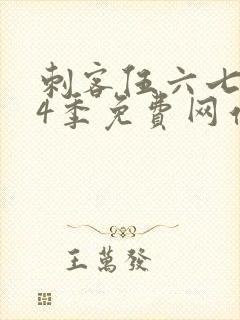 刺客伍六七
4季免费网
王萬發